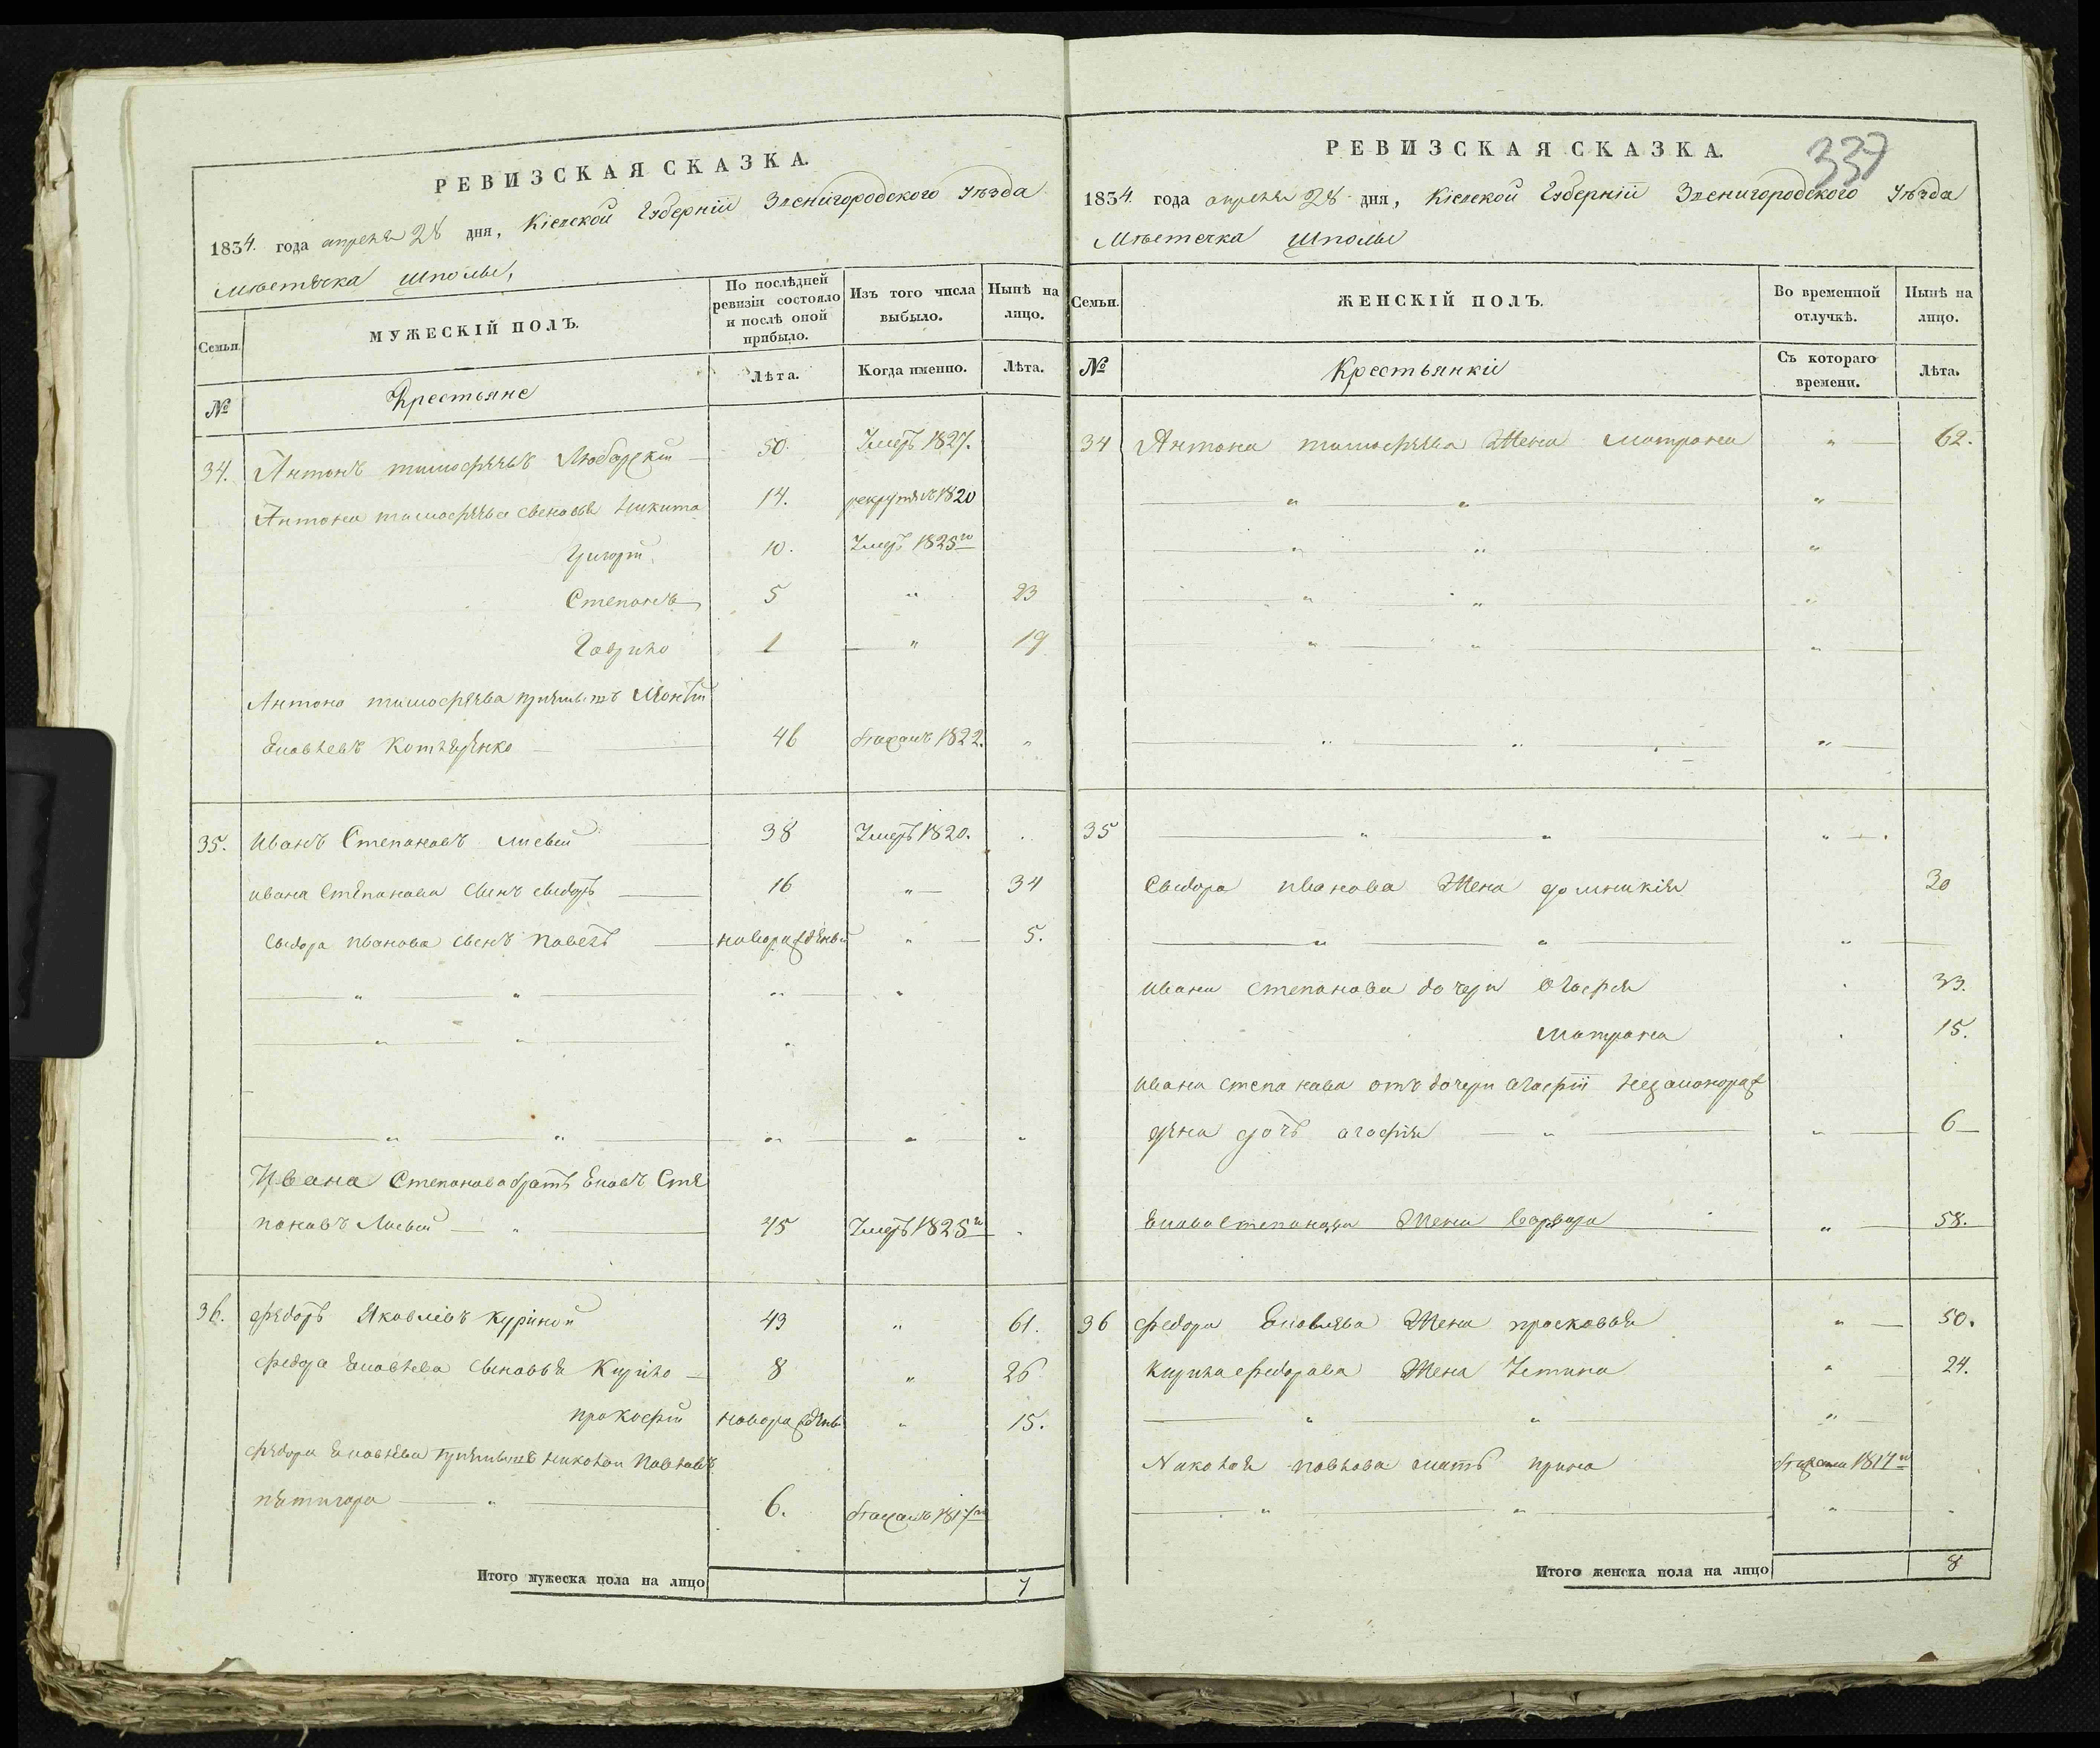 РЕВИЗСКАЯ СКАЗКА.
1834. года апреля 28 дня, Кіевской Губерніи Звенигородского Уѣзда
Мѣстечка Шполы,
Семьи.
МУЖЕСКІЙ ПОЛЪ.
По послѣдней ревизіи состояло и послѣ оной прибыло.
Изъ того числа выбыло.
Нынѣ на лицо.
№
Крестьяне
Лѣта.
Когда именно.
Лѣта.
34. Антонъ тимофѣевъ Любарскій 50. Умеръ 1827.
Антона тимофѣева сыновья Никита 14. рекрутъ 1820
Григорій 10. Умеръ 1825го
Степанъ 5 " 23
Гаврило 1 " 19
Антона тимофѣева
46 1822. "
35. Иванъ Степановъ 38 Умеръ 1820.
ивана Степанова сынъ сыдоръ 16 " 34
Сыдора иванова сынъ павелъ новорожденый " 5.
Ивана Степанова братъ Степановъ 45 Умеръ 1825го
36. Федоръ Яковлевъ 43 " 61.
Федора сыновья Кирило 8 " 26
прокофій новорожденый " 15.
Федора николай Павловъ
пятигора " 6. 1817го
Итого мужеска пола на лицо 7
РЕВИЗСКАЯ СКАЗКА.
337
1834. года апреля 28 дня, Кіевской Губерніи Звенигородского Уѣзда
Мѣстечка Шполы
Семьи.
ЖЕНСКІЙ ПОЛЪ.
Во временной отлучкѣ.
Нынѣ на лицо.
№
Крестьянки
Съ котораго времени.
Лѣта.
34 Антона тимофѣева Жена Матрона " 62.
35
Сыдора иванова Жена домникія 30
Ивана степанова дочери 33.
Матрона 15.
Ивана степанова отъ дочери
дочь агафія " 6
Степанова Жена варвара " 58.
36 Федора Жена прасковья " 50.
Кирила федорова Жена Устина " 24.
Николая павлова мать ирина 1817го
Итого женска пола на лицо 8